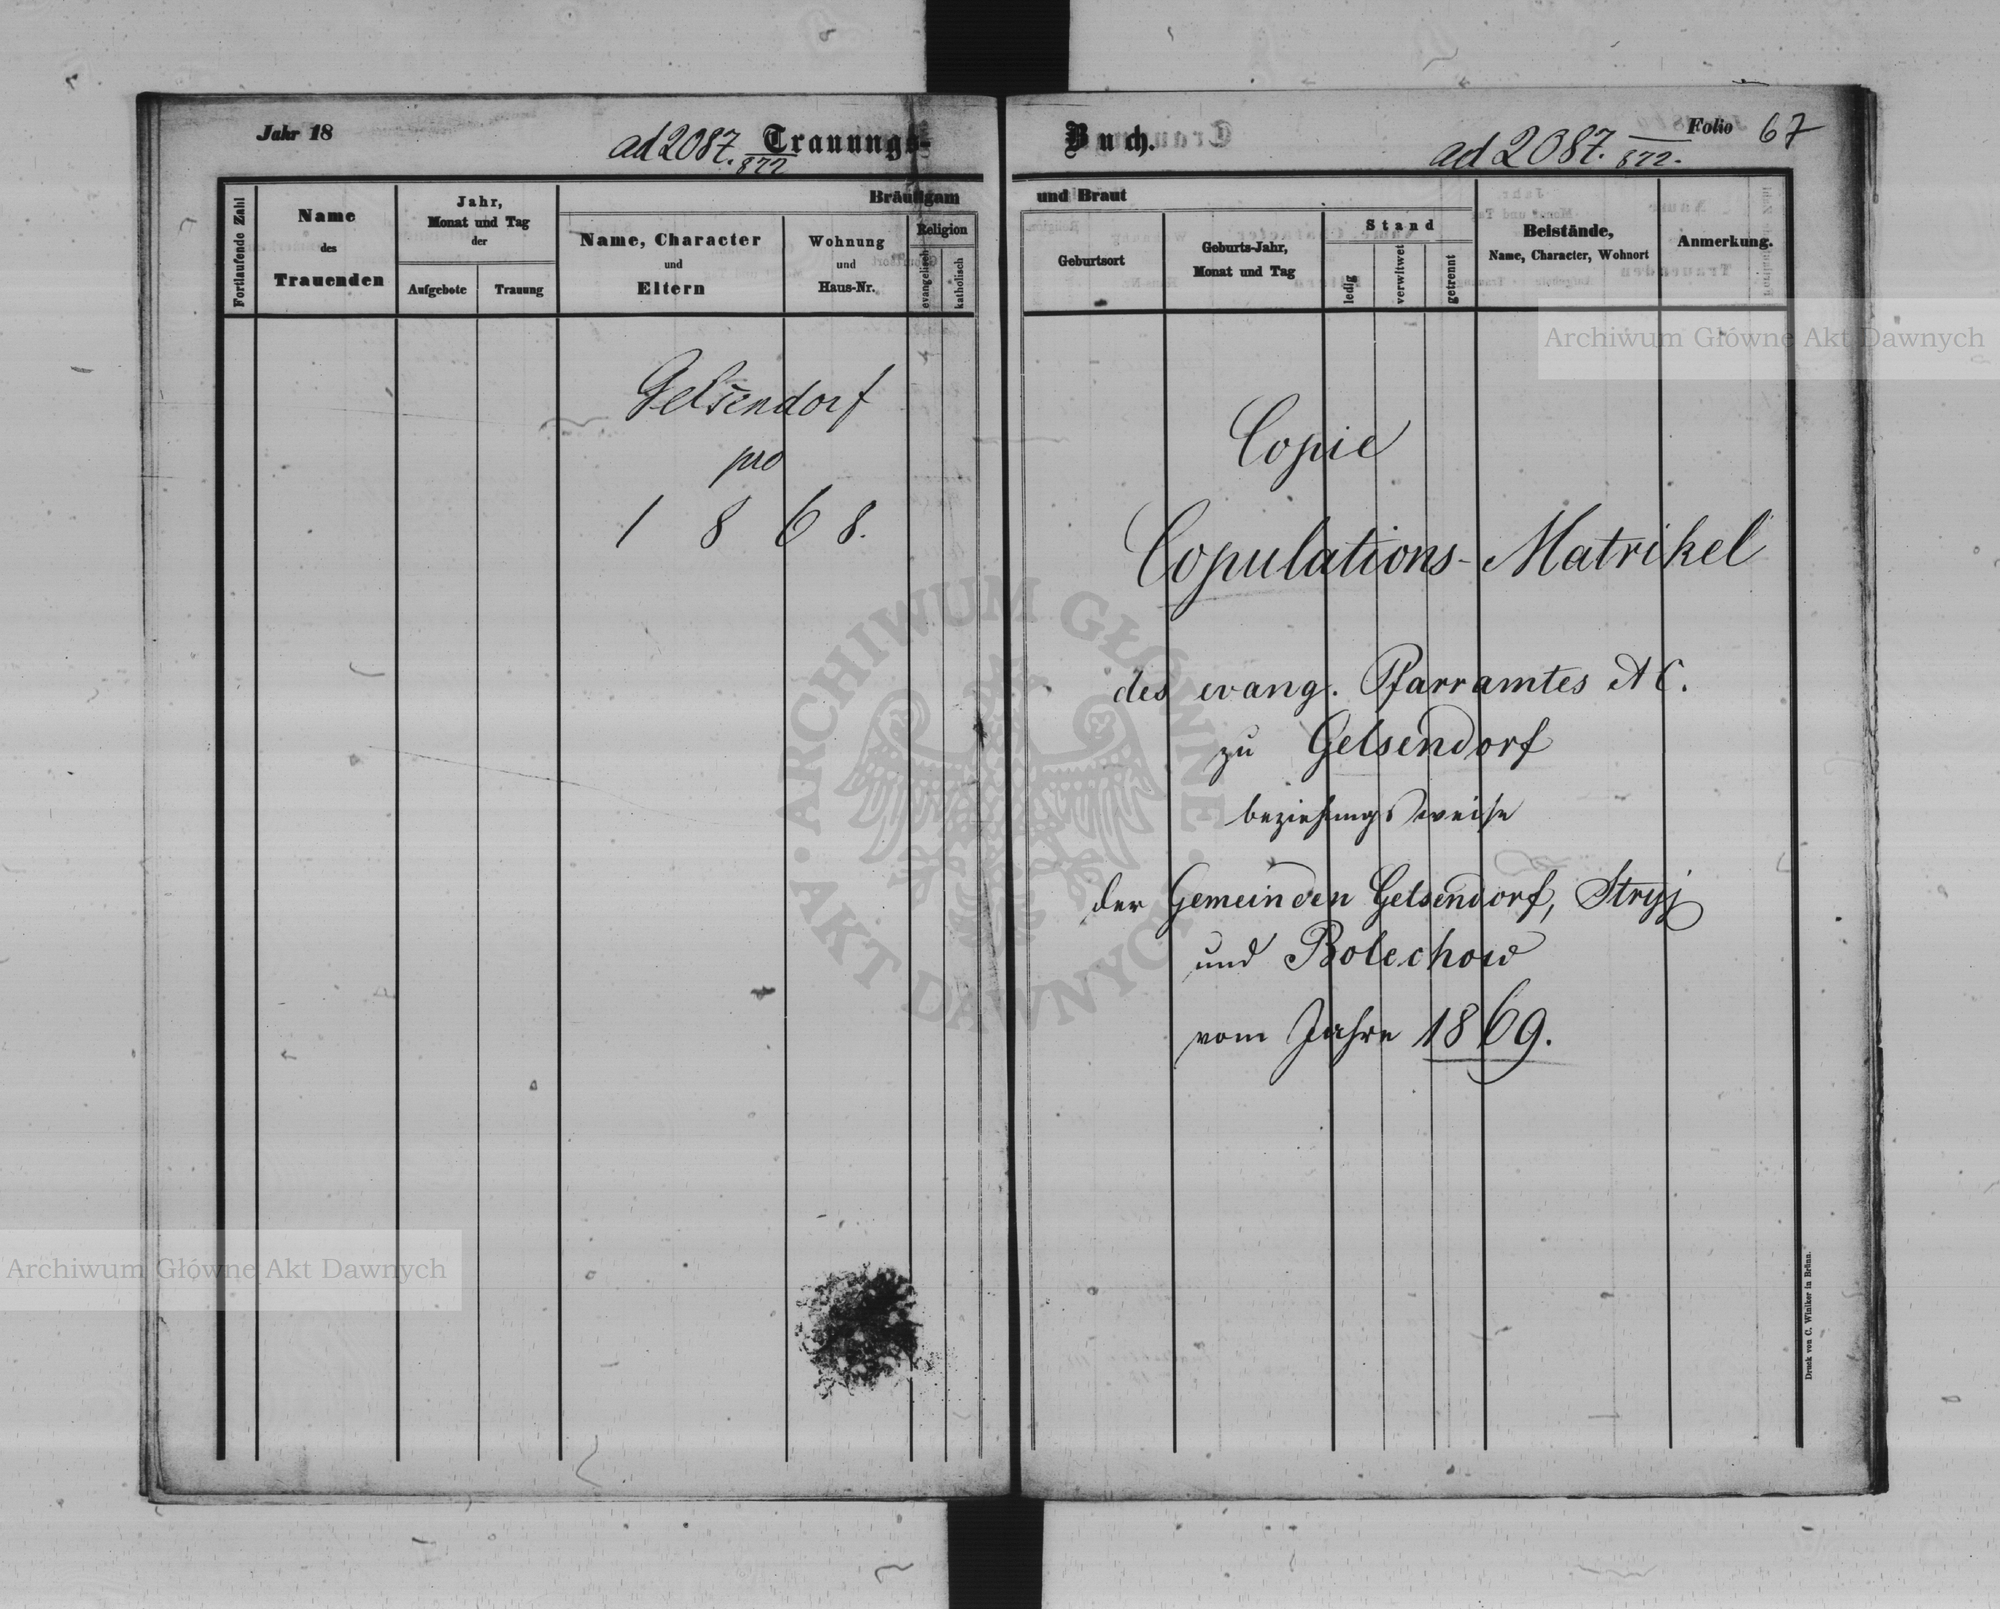 Jahr 18
ad 2087. / 872
Trauungs-
Fortlaufende Zahl
Name
des
Trauenden
Jahr,
Monat und Tag
der
Aufgebote
Trauung
Bräutigam
Name, Character
und
Eltern
Wohnung
und
Haus-Nr.
Religion
evangelisch
katholisch
Gelsendorf
pro
1 8 6 8.
Buch.
ad 2087. / 872.
Folio 67
und Braut
Geburtsort
Geburts-Jahr,
Monat und Tag
Stand
ledig
verwitwet
getrennt
Beistände,
Name, Character, Wohnort
Anmerkung.
Copie
Copulations-Matrikel
des evang. Pfarramtes A C.
zu Gelsendorf
beziehungsweise
der Gemeinden Gelsendorf, Stryj
und Bolechow
vom Jahre 1869.
Druck von C. Winiker in Brünn.
Archiwum Główne Akt Dawnych
Archiwum Główne Akt Dawnych
ARCHIWUM GŁÓWNE · AKT DAWNYCH ·